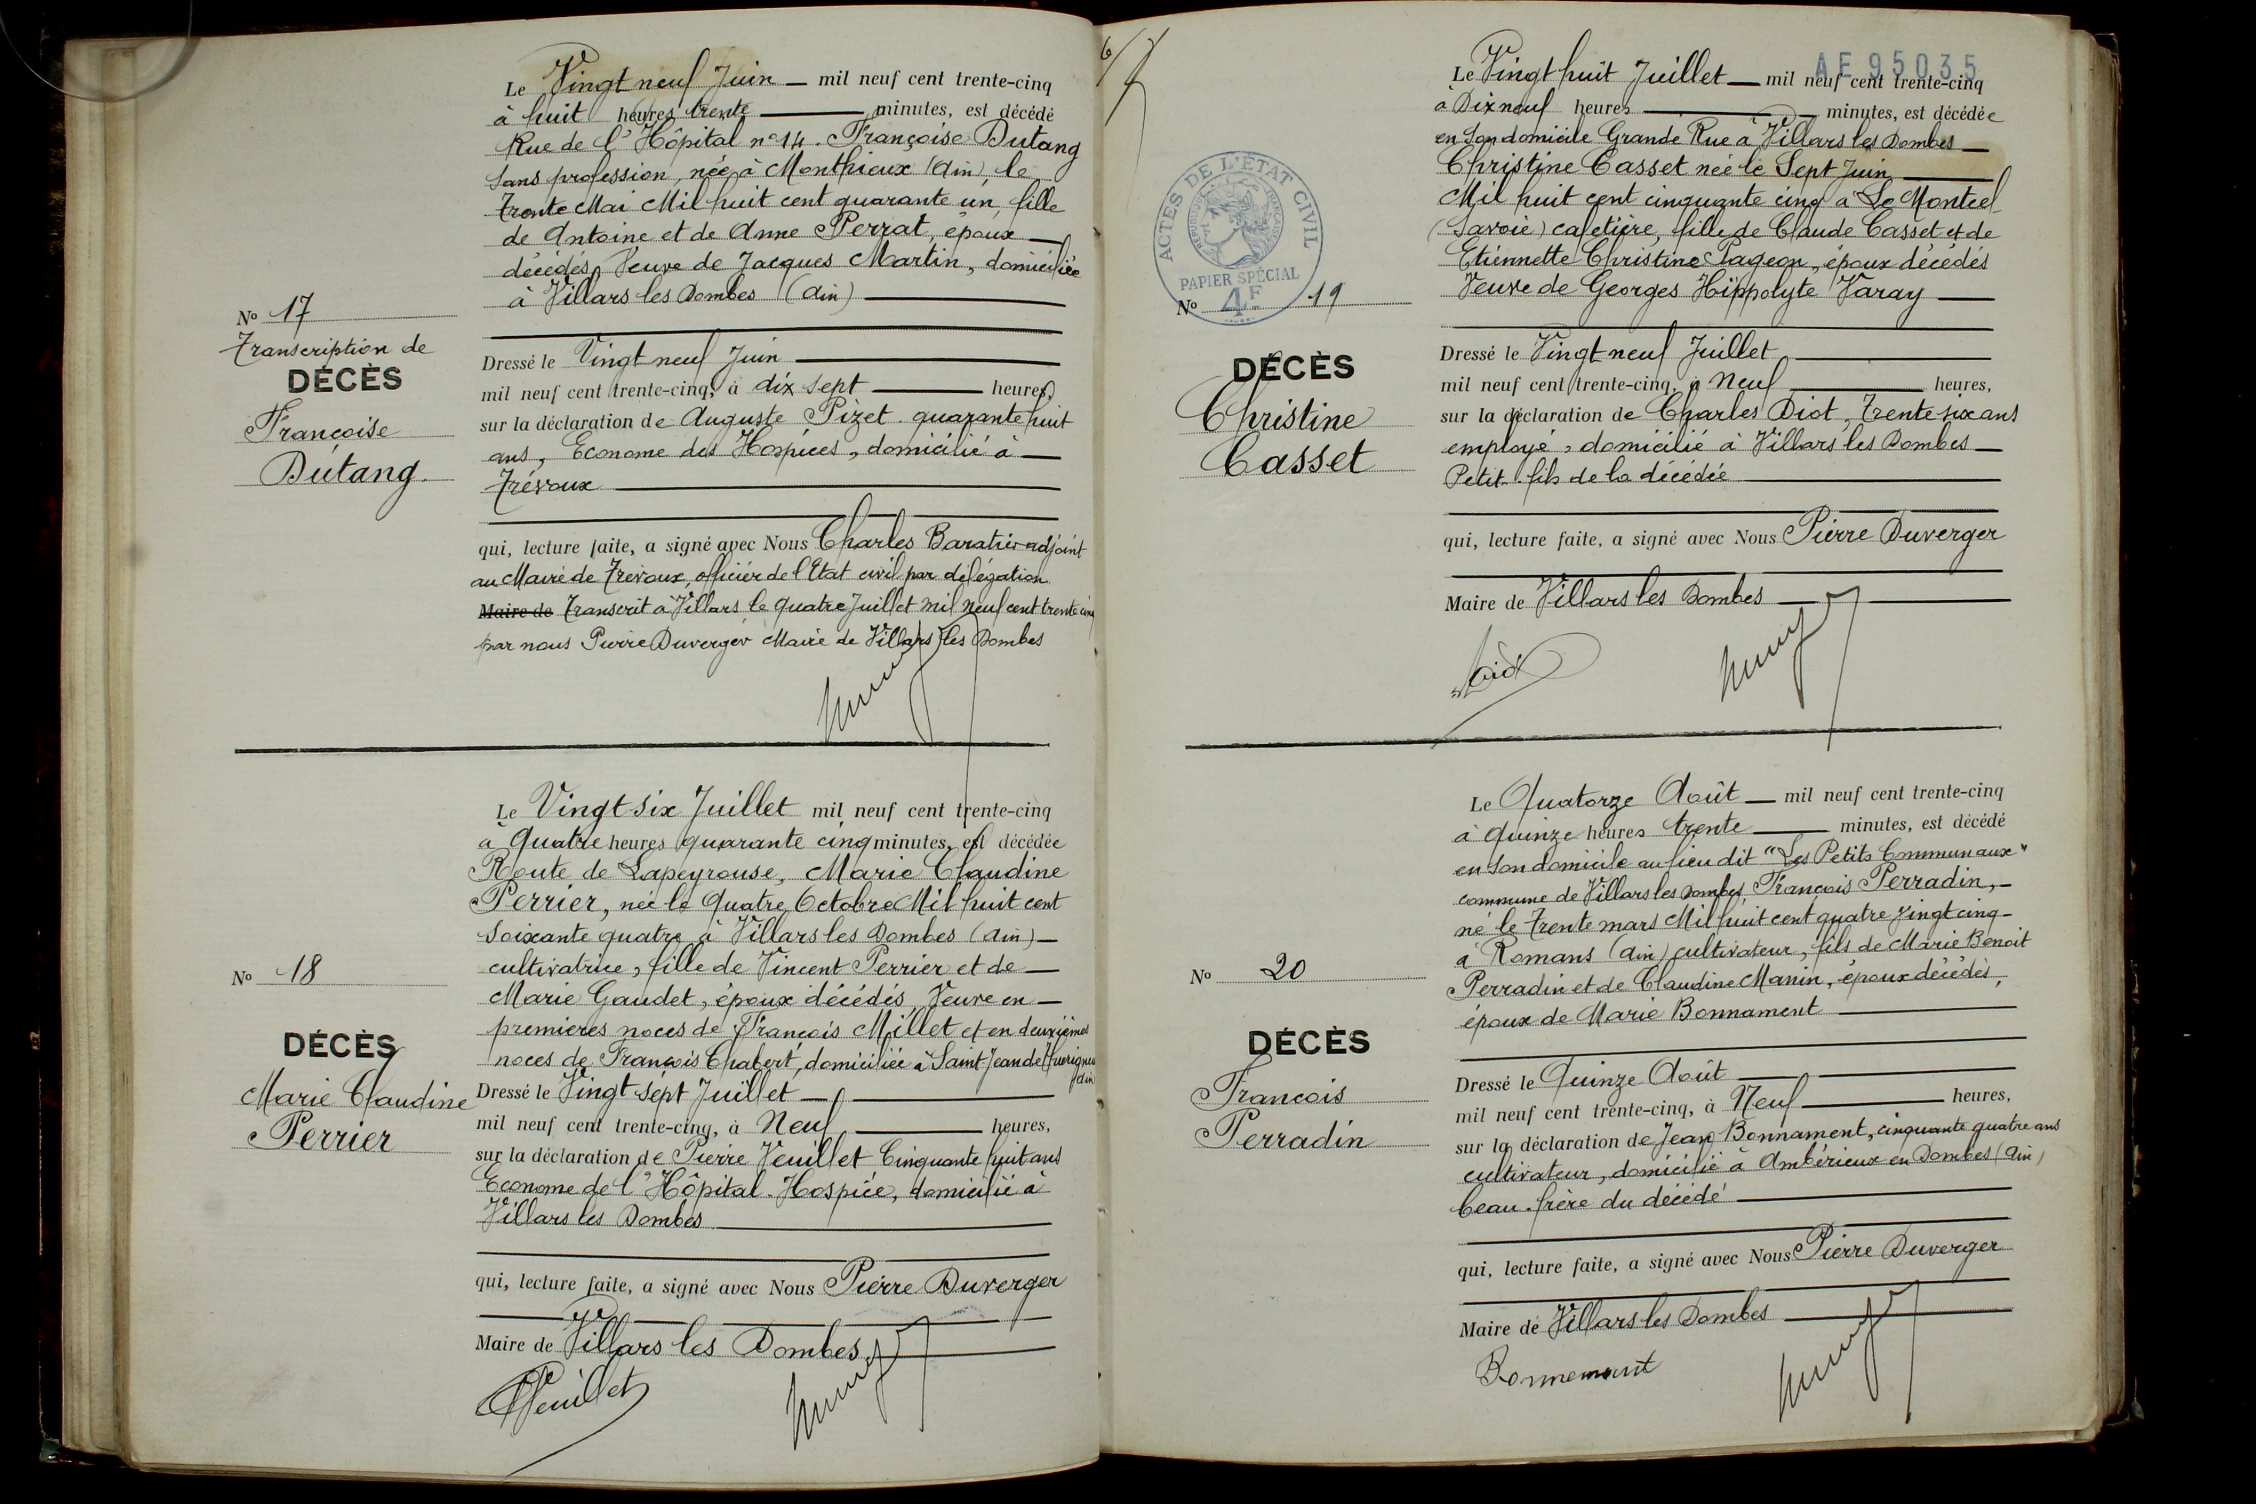 Le Vingt neuf Juin mil neuf cent trente-cinq
à huit heures trente minutes, est décédé
Rue de l'Hôpital n° 14. Françoise Dutang
sans profession, née à Monthieux (Ain), le
trente Mai Mil huit cent quarante un, fille
de Antoine et de Anne Perrat, époux
décédés, Veuve de Jacques Martin, domiciliée
à Villars les Dombes (Ain)
No 17
Transcription de
DÉCÈS
Françoise
Dutang.
Dressé le Vingt neuf Juin
mil neuf cent trente-cinq, à dix sept heures,
sur la déclaration de Auguste Pizet quarante huit
ans, Econome des Hospices, domicilié à
Trévoux
qui, lecture faite, a signé avec Nous Charles Baratier adjoint
au Maire de Trévoux, officier de l'Etat civil par délégation
Maire de Transcrit à Villars le quatre Juillet mil neuf cent trente cinq
par nous Pierre Duverger Maire de Villars les Dombes
Le Vingt six Juillet mil neuf cent trente-cinq
à Quatre heures quarante cinq minutes, est décédée
Route de Lapeyrouse, Marie Claudine
Perrier, née le Quatre Octobre Mil huit cent
soixante quatre à Villars les Dombes (Ain)
cultivatrice, fille de Vincent Perrier et de
Marie Gaudet, époux décédés, Veuve en
premières noces de François Millet et en deuxièmes
noces de François Chabert, domiciliée à Saint Jean de Thurigneux
(Ain)
No 18
DÉCÈS
Marie Claudine
Perrier
Dressé le Vingt sept Juillet
mil neuf cent trente-cinq, à Neuf heures,
sur la déclaration de Pierre Veuillet Cinquante huit ans
Econome de l'Hôpital-Hospice, domicilié à
Villars les Dombes
qui, lecture faite, a signé avec Nous Pierre Duverger
Maire de Villars les Dombes
Veuillet
AE 95035
Le Vingt huit Juillet mil neuf cent trente-cinq
à Dix neuf heures minutes, est décédée
en son domicile Grande Rue à Villars les Dombes
Christine Casset née le Sept Juin
Mil huit cent cinquante cinq à Le Montcel
(Savoie) cafetière, fille de Claude Casset et de
Etiennette Christine Pageon, époux décédés
Veuve de Georges Hippolyte Varay
ACTES DE L'ÉTAT CIVIL
RÉPUBLIQUE FRANÇAISE
PAPIER SPÉCIAL
4F
No 19
DÉCÈS
Christine
Casset
Dressé le Vingt neuf Juillet
mil neuf cent trente-cinq, à Neuf heures,
sur la déclaration de Charles Diot, Trente six ans
employé, domicilié à Villars les Dombes
Petit-fils de la décédée
qui, lecture faite, a signé avec Nous Pierre Duverger
Maire de Villars les Dombes
Le Quatorze Août mil neuf cent trente-cinq
à quinze heures trente minutes, est décédé
en son domicile au lieu dit "Les Petits Communaux"
commune de Villars les Dombes, François Perradin,
né le trente mars Mil huit cent quatre vingt cinq
à Romans (Ain) cultivateur, fils de Marie Benoit
Perradin et de Claudine Manin, époux décédés,
époux de Marie Bonnament
No 20
DÉCÈS
François
Perradin
Dressé le Quinze Août
mil neuf cent trente-cinq, à Neuf heures,
sur la déclaration de Jean Bonnament, cinquante quatre ans
cultivateur, domicilié à Ambérieux en Dombes (Ain)
beau-frère du décédé
qui, lecture faite, a signé avec Nous Pierre Duverger
Maire de Villars les Dombes
Bonnemant